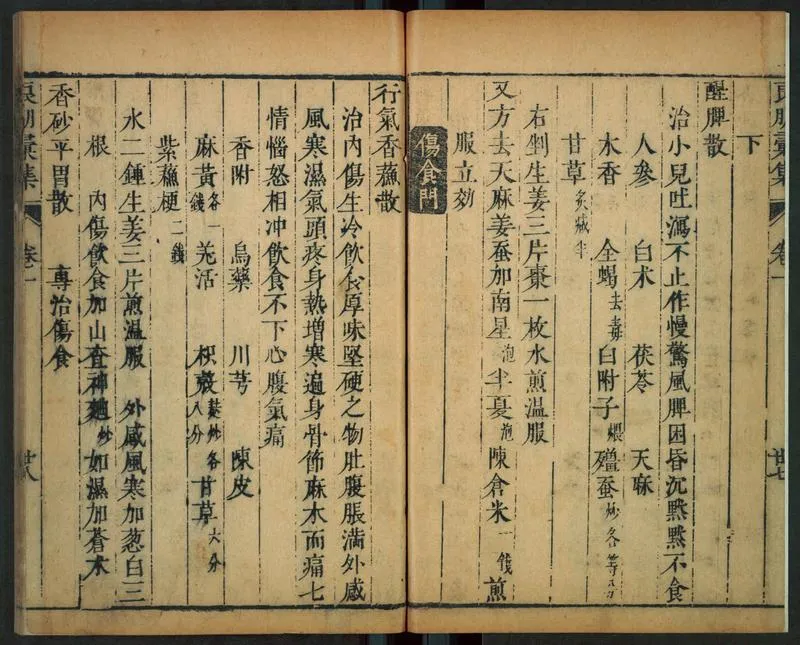 下
醒脾散
治小兒吐瀉不止作慢驚風脾困昏沉黙黙不食
人參 白术 茯苓 天麻
木香 全蝎去毒 白附子煨 殭蚕炒各等分
甘草炙減半
右剉生姜三片棗一枚水煎温服
又方去天麻姜蚕加南星泡半夏泡陳倉米一錢煎
服立効
傷食門
行氣香蘓散
治内傷生冷飲食厚味堅硬之物肚腹脹滿外感
風寒濕氣頭疼身熱増寒遍身骨節麻木而痛七
情惱怒相冲飲食不下心腹氣痛
香附 烏藥 川芎 陳皮
麻黄各一錢 羌活 枳殻麩炒各八分 甘草六分
紫蘓梗二錢
水二鍾生姜三片煎温服 外感風寒加葱白三
根 内傷飲食加山查神麯炒 如濕加蒼术
香砂平胃散 專治傷食
卷一
廿七
卷一
廿八